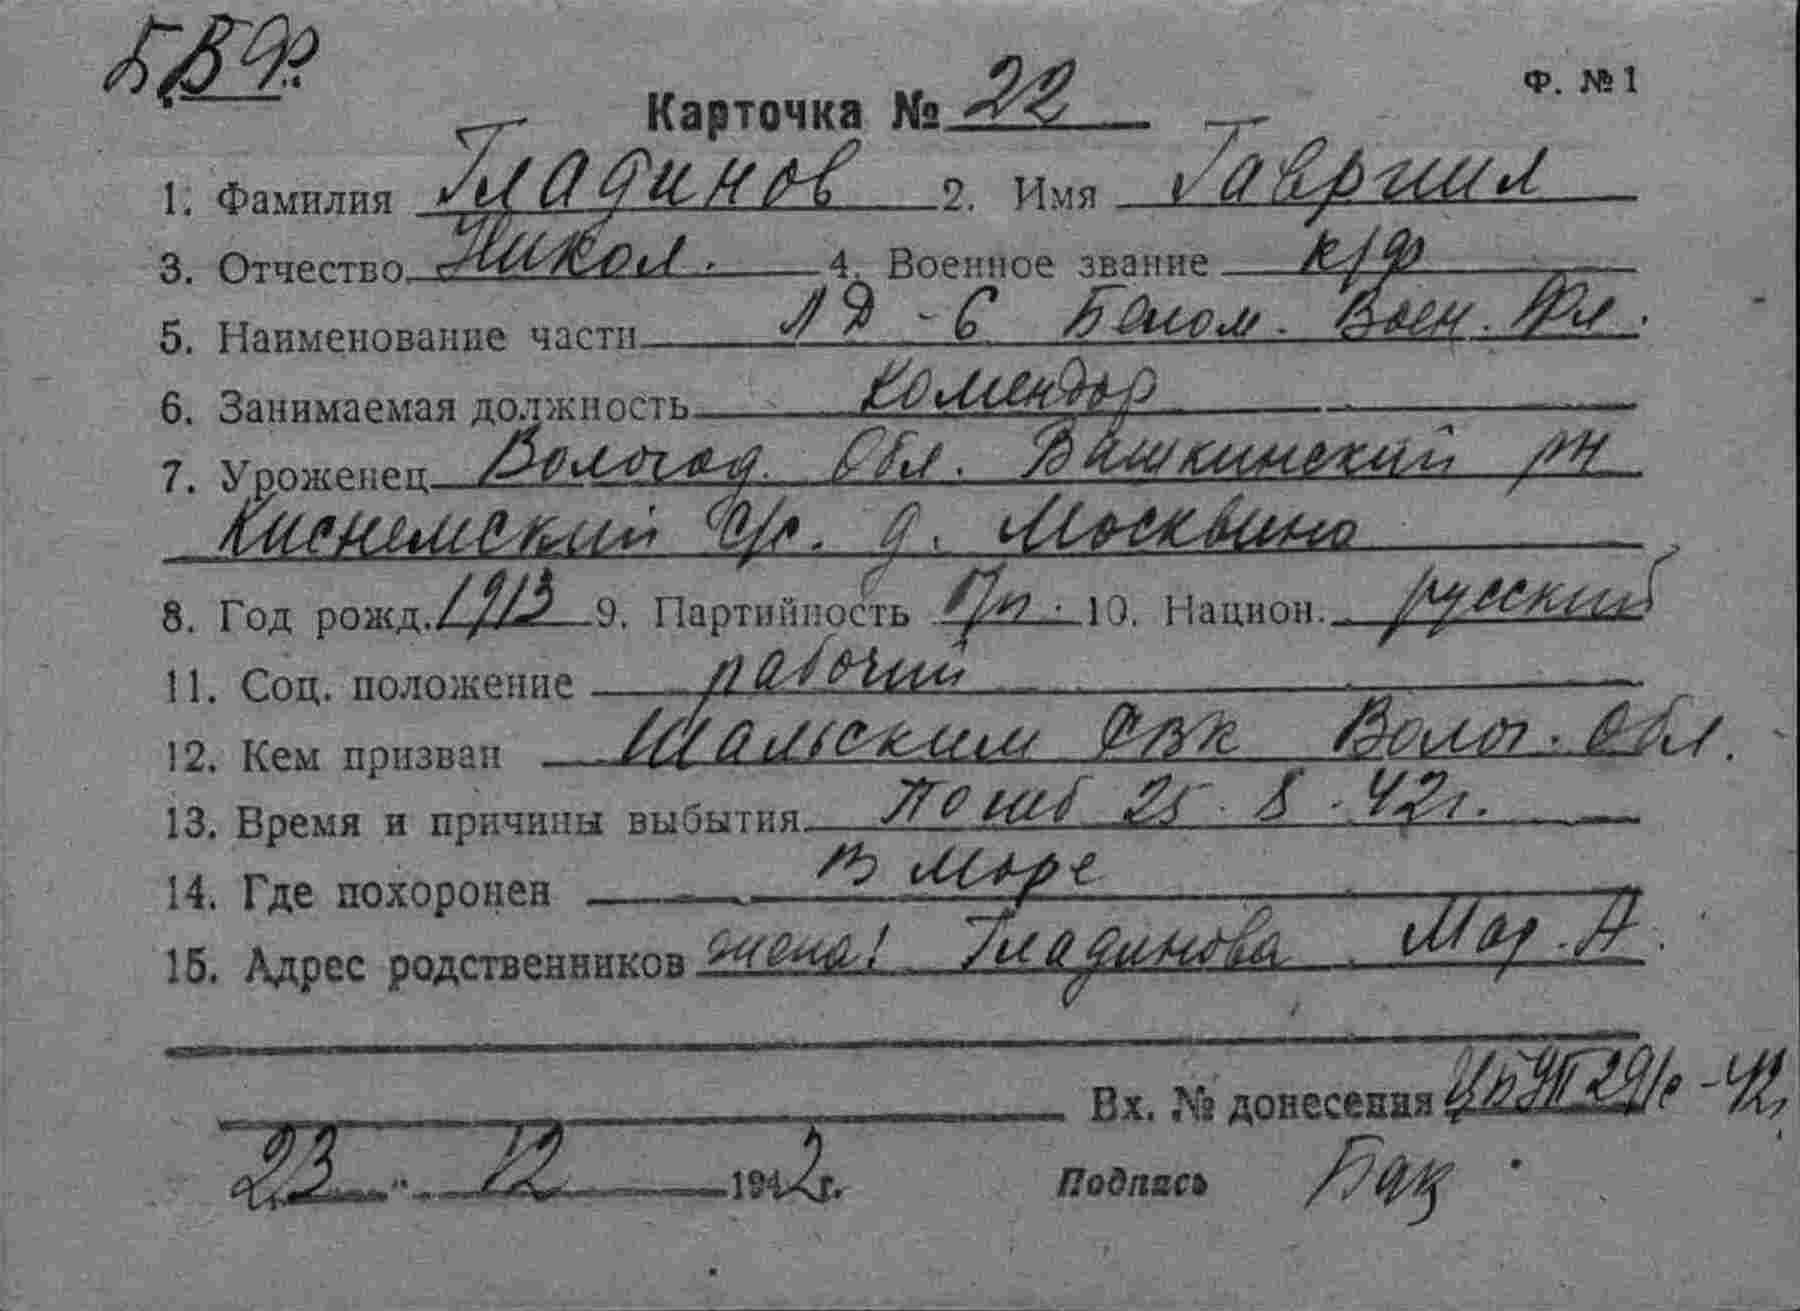 Б.В.Ф.
Ф. № 1
Карточка № 22
1. Фамилия Гладинов 2. Имя Гавриил
3. Отчество Никол. 4. Военное звание к/ф
5. Наименование части ЛД-6 Белом. Воен. Фл.
6. Занимаемая должность Комендор
7. Уроженец Вологод. Обл. Вашкинский рн
Киснемский с/с. д. Москвино
8. Год рожд. 1913 9. Партийность б/п. 10. Национ. русский
11. Соц. положение рабочий
12. Кем призван Шальским РВК Волог. Обл.
13. Время и причины выбытия Погиб 25.8.42г.
14. Где похоронен В море
15. Адрес родственников жена! Гладинова Мар. А.
Вх. № донесения 29/с-42г.
23 " 12 1942г. Подпись